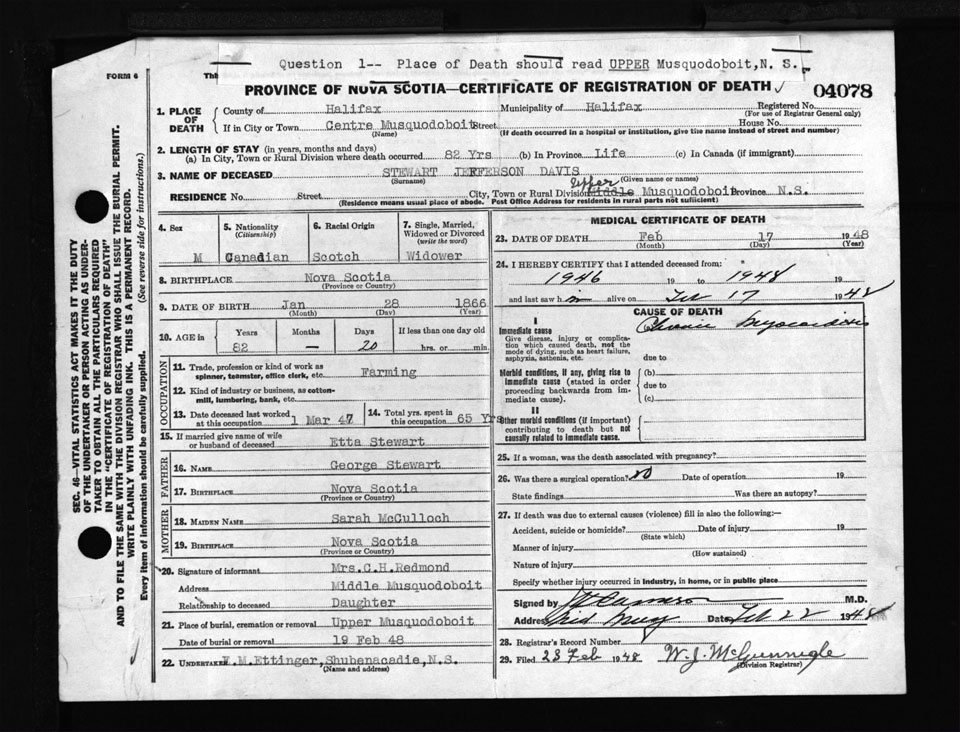 Question 1-- Place of Death should read UPPER Musquodoboit, N. S.
FORM 6
Th
PROVINCE OF NOVA SCOTIA—CERTIFICATE OF REGISTRATION OF DEATH
04078
1. PLACE OF DEATH
County of Halifax Municipality of Halifax Registered No.
(For use of Registrar General only)
If in City or Town Centre Musquodoboit Street House No.
(Name) (If death occurred in a hospital or institution, give the name instead of street and number)
2. LENGTH OF STAY (in years, months and days)
(a) In City, Town or Rural Division where death occurred 82 Yrs (b) In Province Life (c) In Canada (if immigrant)
3. NAME OF DECEASED STEWART JEFFERSON DAVIS
(Surname) (Given name or names)
Upper
RESIDENCE No. Street City, Town or Rural Division Middle Musquodoboit Province N.S.
(Residence means usual place of abode. Post Office Address for residents in rural parts not sufficient)
4. Sex
M
5. Nationality
(Citizenship)
Canadian
6. Racial Origin
Scotch
7. Single, Married, Widowed or Divorced
(write the word)
Widower
8. BIRTHPLACE Nova Scotia
(Province or Country)
9. DATE OF BIRTH Jan 28 1866
(Month) (Day) (Year)
10. AGE in
Years Months Days If less than one day old
82 — 20 hrs. or min.
OCCUPATION
11. Trade, profession or kind of work as spinner, teamster, office clerk, etc. Farming
12. Kind of industry or business, as cotton-mill, lumbering, bank, etc.
13. Date deceased last worked at this occupation 1 Mar 47
14. Total yrs. spent in this occupation 65 Yrs
15. If married give name of wife or husband of deceased Etta Stewart
FATHER
16. NAME George Stewart
17. BIRTHPLACE Nova Scotia
(Province or Country)
MOTHER
18. MAIDEN NAME Sarah McCulloch
19. BIRTHPLACE Nova Scotia
(Province or Country)
20. Signature of informant Mrs.C.H.Redmond
Address Middle Musquodoboit
Relationship to deceased Daughter
21. Place of burial, cremation or removal Upper Musquodoboit
Date of burial or removal 19 Feb 48
22. UNDERTAKER .M.Ettinger,Shubenacadie,N.S.
(Name and address)
MEDICAL CERTIFICATE OF DEATH
23. DATE OF DEATH Feb 17 1948
(Month) (Day) (Year)
24. I HEREBY CERTIFY that I attended deceased from:
1946 19 to 1948 19
and last saw h im alive on Feb 17 1948
CAUSE OF DEATH
I
Immediate cause
Give disease, injury or complication which caused death, not the mode of dying, such as heart failure, asphyxia, asthenia, etc.
Chronic Myocarditis
due to
Morbid conditions, if any, giving rise to immediate cause (stated in order proceeding backwards from immediate cause).
(b)
due to
(c)
II
Other morbid conditions (if important) contributing to death but not causally related to immediate cause.
25. If a woman, was the death associated with pregnancy?
26. Was there a surgical operation? no Date of operation 19
State findings Was there an autopsy?
27. If death was due to external causes (violence) fill in also the following:—
Accident, suicide or homicide? Date of injury 19
(State which)
Manner of injury
(How sustained)
Nature of injury
Specify whether injury occurred in industry, in home, or in public place
Signed by M.D.
Address Date Feb 22 1948
28. Registrar's Record Number
29. Filed 23 Feb 1948 W. J. McGunnigle
(Division Registrar)
SEC. 46—VITAL STATISTICS ACT MAKES IT THE DUTY
OF THE UNDERTAKER OR PERSON ACTING AS UNDER-
TAKER TO OBTAIN ALL THE PARTICULARS REQUIRED
IN THE "CERTIFICATE OF REGISTRATION OF DEATH"
AND TO FILE THE SAME WITH THE DIVISION REGISTRAR WHO SHALL ISSUE THE BURIAL PERMIT.
WRITE PLAINLY WITH UNFADING INK. THIS IS A PERMANENT RECORD.
Every item of information should be carefully supplied. (See reverse side for instructions.)